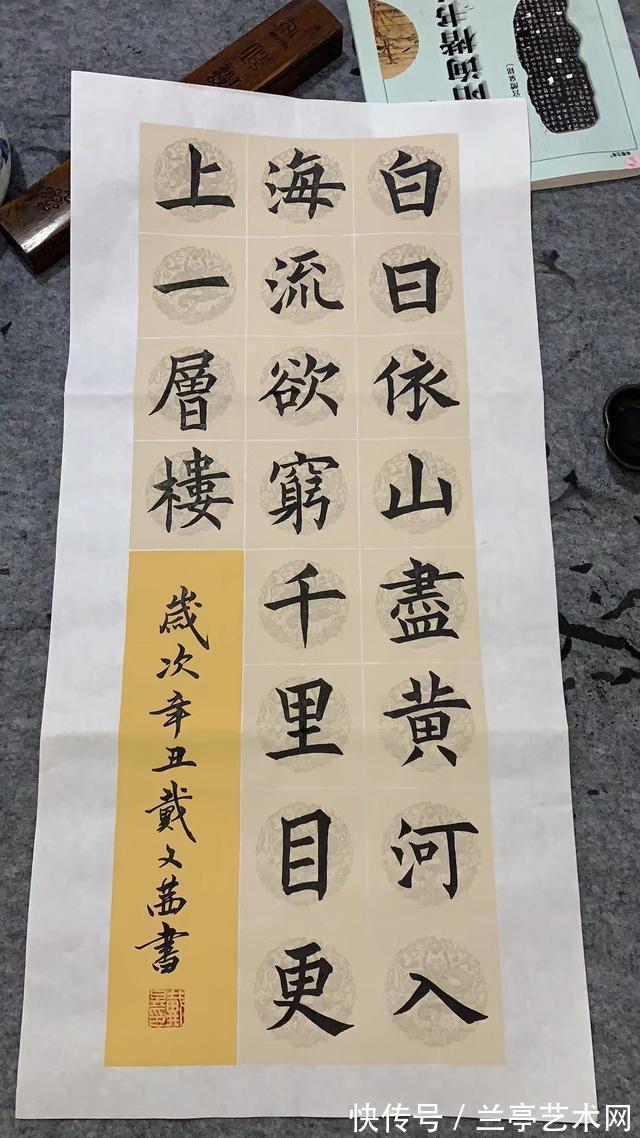 白日依山盡黄河入
海流欲窮千里目更
上一層樓
歲次辛丑戴文茜書
快传号／兰亭艺术网